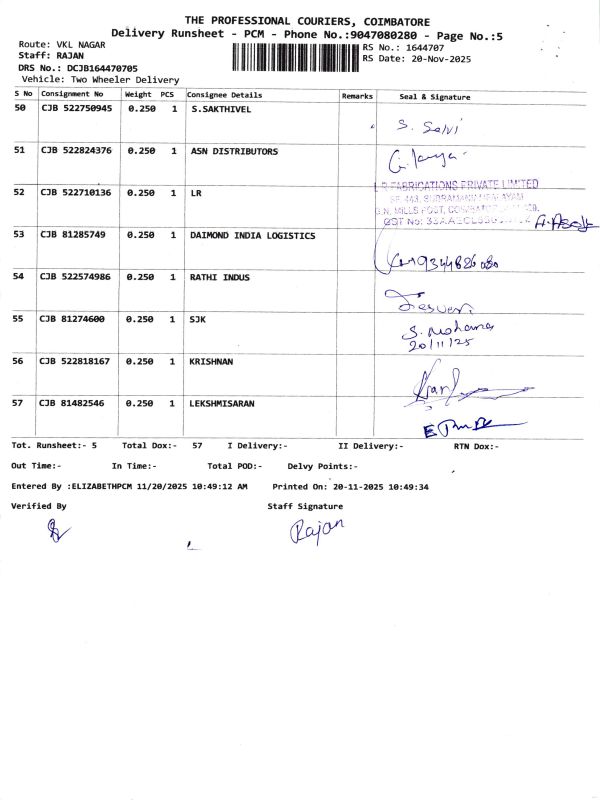 THE PROFESSIONAL COURIERS, COIMBATORE
Delivery Runsheet - PCM - Phone No.:9047080280 - Page No.:5
Route: VKL NAGAR
RS No.: 1644707
Staff: RAJAN
RS Date: 20-Nov-2025
DRS No.: DCJB164470705
Vehicle: Two Wheeler Delivery
S No Consignment No Weight PCS Consignee Details Remarks Seal & Signature
50 CJB 522750945 0.250 1 S.SAKTHIVEL
S. Selvi
51 CJB 522824376 0.250 1 ASN DISTRIBUTORS
52 CJB 522710136 0.250 1 LR
L R FABRICATIONS PRIVATE LIMITED
SF. 443, SUBRAMANIAMPALAYAM
G.N. MILLS POST, COIMBATORE
GST No:
A. Asok
53 CJB 81285749 0.250 1 DAIMOND INDIA LOGISTICS
54 CJB 522574986 0.250 1 RATHI INDUS
55 CJB 81274600 0.250 1 SJK
S. Mohana
20/11/25
56 CJB 522818167 0.250 1 KRISHNAN
57 CJB 81482546 0.250 1 LEKSHMISARAN
Tot. Runsheet:- 5 Total Dox:- 57 I Delivery:- II Delivery:- RTN Dox:-
Out Time:- In Time:- Total POD:- Delvy Points:-
Entered By :ELIZABETHPCM 11/20/2025 10:49:12 AM Printed On: 20-11-2025 10:49:34
Verified By Staff Signature
Rajan